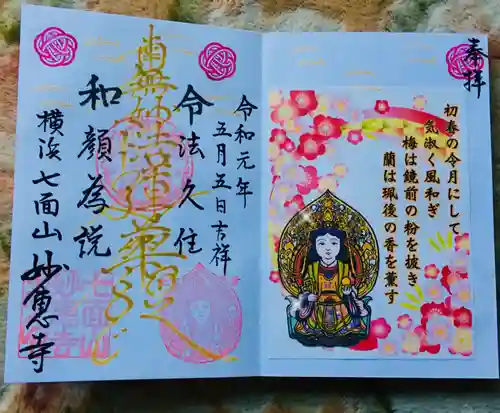 奉拝
初春の令月にして
気淑く風和ぎ
梅は鏡前の粉を披き
蘭は珮後の香を薫す
令和元年
五月五日吉祥
令法久住
南無妙法蓮華経
和顔為説
横浜七面山妙恵寺